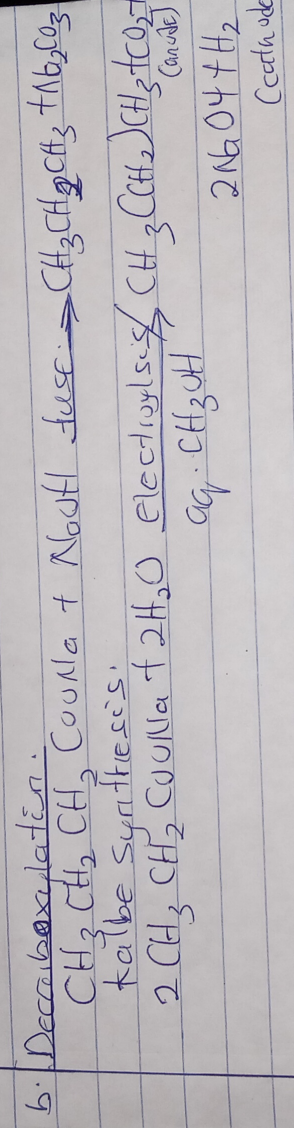 b. Deccaboxylation.
CH3CH2CH2COONa + NaOH fuse → CH3CH2CH3 + Na2CO3
Kalbe Synthesis.
2CH3CH2COONa + 2H2O Electroylsis → CH3(CH2)CH3+CO2+
aq. CH3OH (anode)
2NaOH+H2
(cathode